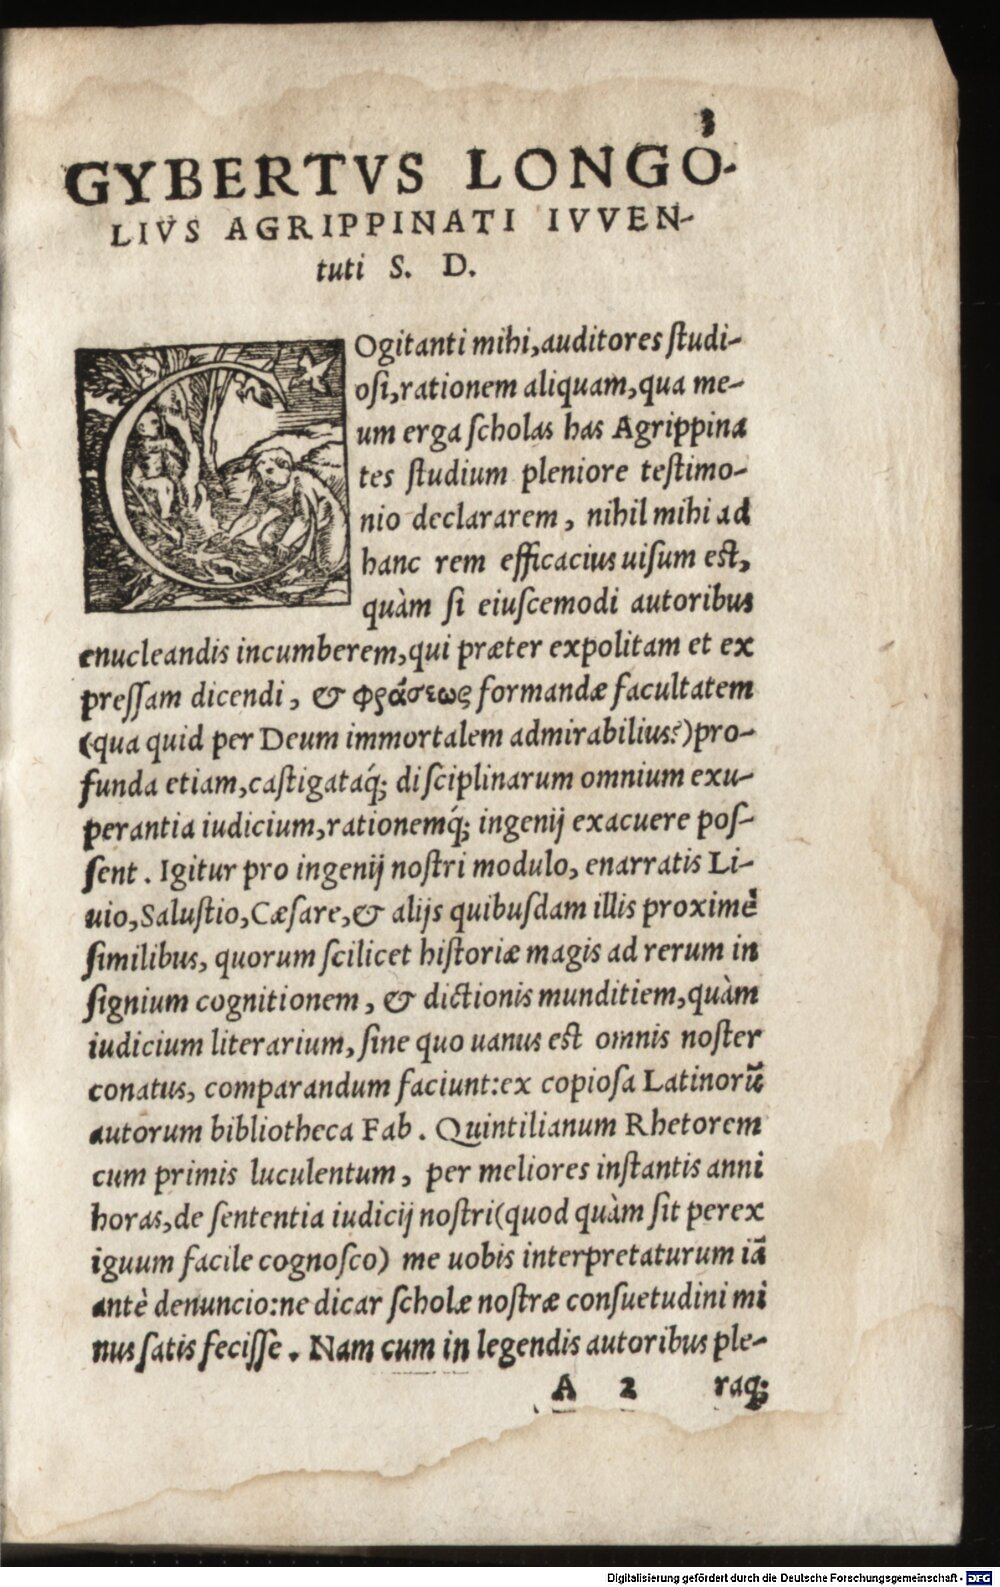 3
GYBERTVS LONGO-
LIVS AGRIPPINATI IVVEN-
tuti S. D.
COgitanti mihi, auditores ſtudi-
oſi, rationem aliquam, qua me-
um erga ſcholas has Agrippina
tes ſtudium pleniore teſtimo-
nio declararem, nihil mihi ad
hanc rem efficacius uiſum eſt,
quàm ſi eiuſcemodi autoribus
enucleandis incumberem, qui præter expolitam et ex
preſſam dicendi, & φράσεως formandæ facultatem
(qua quid per Deum immortalem admirabilius?) pro-
funda etiam, caſtigataq́; diſciplinarum omnium exu-
perantia iudicium, rationemq́; ingenij exacuere poſ-
ſent. Igitur pro ingenij noſtri modulo, enarratis Li-
uio, Saluſtio, Cæſare, & alijs quibuſdam illis proximè
ſimilibus, quorum ſcilicet hiſtoriæ magis ad rerum in
ſignium cognitionem, & dictionis munditiem, quàm
iudicium literarium, ſine quo uanus eſt omnis noſter
conatus, comparandum faciunt: ex copioſa Latinorũ
autorum bibliotheca Fab. Quintilianum Rhetorem
cum primis luculentum, per meliores inſtantis anni
horas, de ſententia iudicij noſtri (quod quàm ſit perex
iguum facile cognoſco) me uobis interpretaturum iã
antè denuncio: ne dicar ſcholæ noſtræ conſuetudini mi
nus ſatis feciſſe. Nam cum in legendis autoribus ple-
A 2 raq;
Digitalisierung gefördert durch die Deutsche Forschungsgemeinschaft - DFG